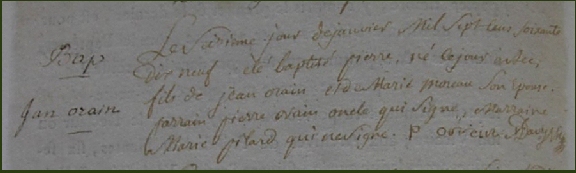 Bap
jan orain
Le Sixieme jour dejanvier Mil Sept cens soixante
Dix neuf a été baptisé pierre, né cejour
fils de jean orain et de Marie moreau Son Epouse.
parrain pierre orain oncle qui signe, Marraine
Marie pilard qui ne signe. P